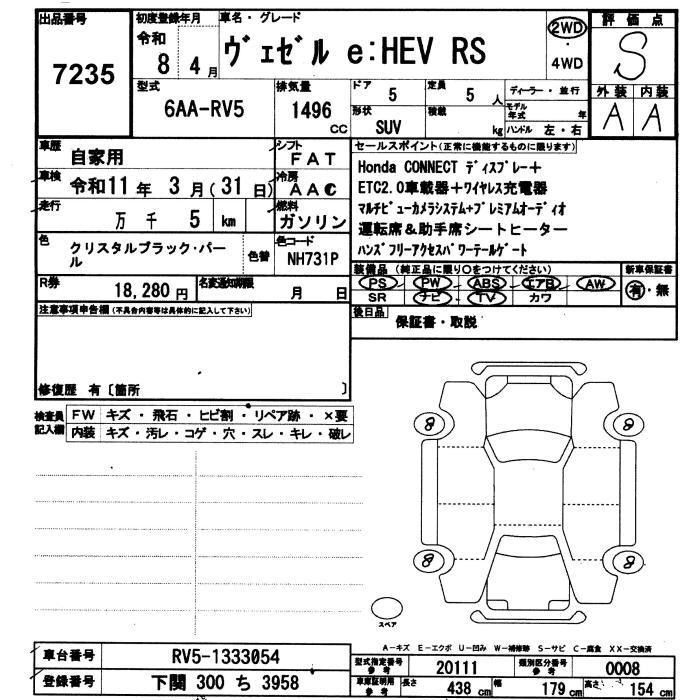 出品番号
7235
初度登録年月
令和
8 4月
車名・グレード
ヴェゼル e:HEV RS
2WD
・
4WD
評価点
S
外装 内装
A A
型式
6AA-RV5
排気量
1496
CC
ドア
5
定員
5 人
ディーラー・並行
形状
SUV
積載
kg
モデル年式 年
ハンドル 左・右
車歴
自家用
シフト
FAT
車検
令和11年 3月(31日)
冷房
AAC
走行
万 千 5 km
燃料
ガソリン
色
クリスタルブラック・パール
色替
色コード
NH731P
R券
18,280円
名変通知期限
月 日
セールスポイント(正常に機能するものに限ります)
Honda CONNECT ディスプレー+
ETC2.0車載器+ワイヤレス充電器
マルチビューカメラシステム+プレミアムオーディオ
運転席&助手席シートヒーター
ハンズフリーアクセスパワーテールゲート
装備品(純正品に限り○をつけてください)
PS PW ABS エアB AW
SR ナビ TV カワ
新車保証書
有・無
後日品
保証書・取説
注意事項申告欄(不具合内容等は具体的に記入して下さい)
修復歴 有〔箇所 〕
検査員記入欄
FW キズ・飛石・ヒビ割・リペア跡・×要
内装 キズ・汚レ・コゲ・穴・スレ・キレ・破レ
8 8
8 8
スペア
A-キズ E-エクボ U-凹み W-補修跡 S-サビ C-腐食 XX-交換済
車台番号
RV5-1333054
登録番号
下関 300 ち 3958
型式指定番号参考
20111
類別区分番号参考
0008
車庫証明用参考
長さ 438 cm 幅 179 cm 高さ 154 cm